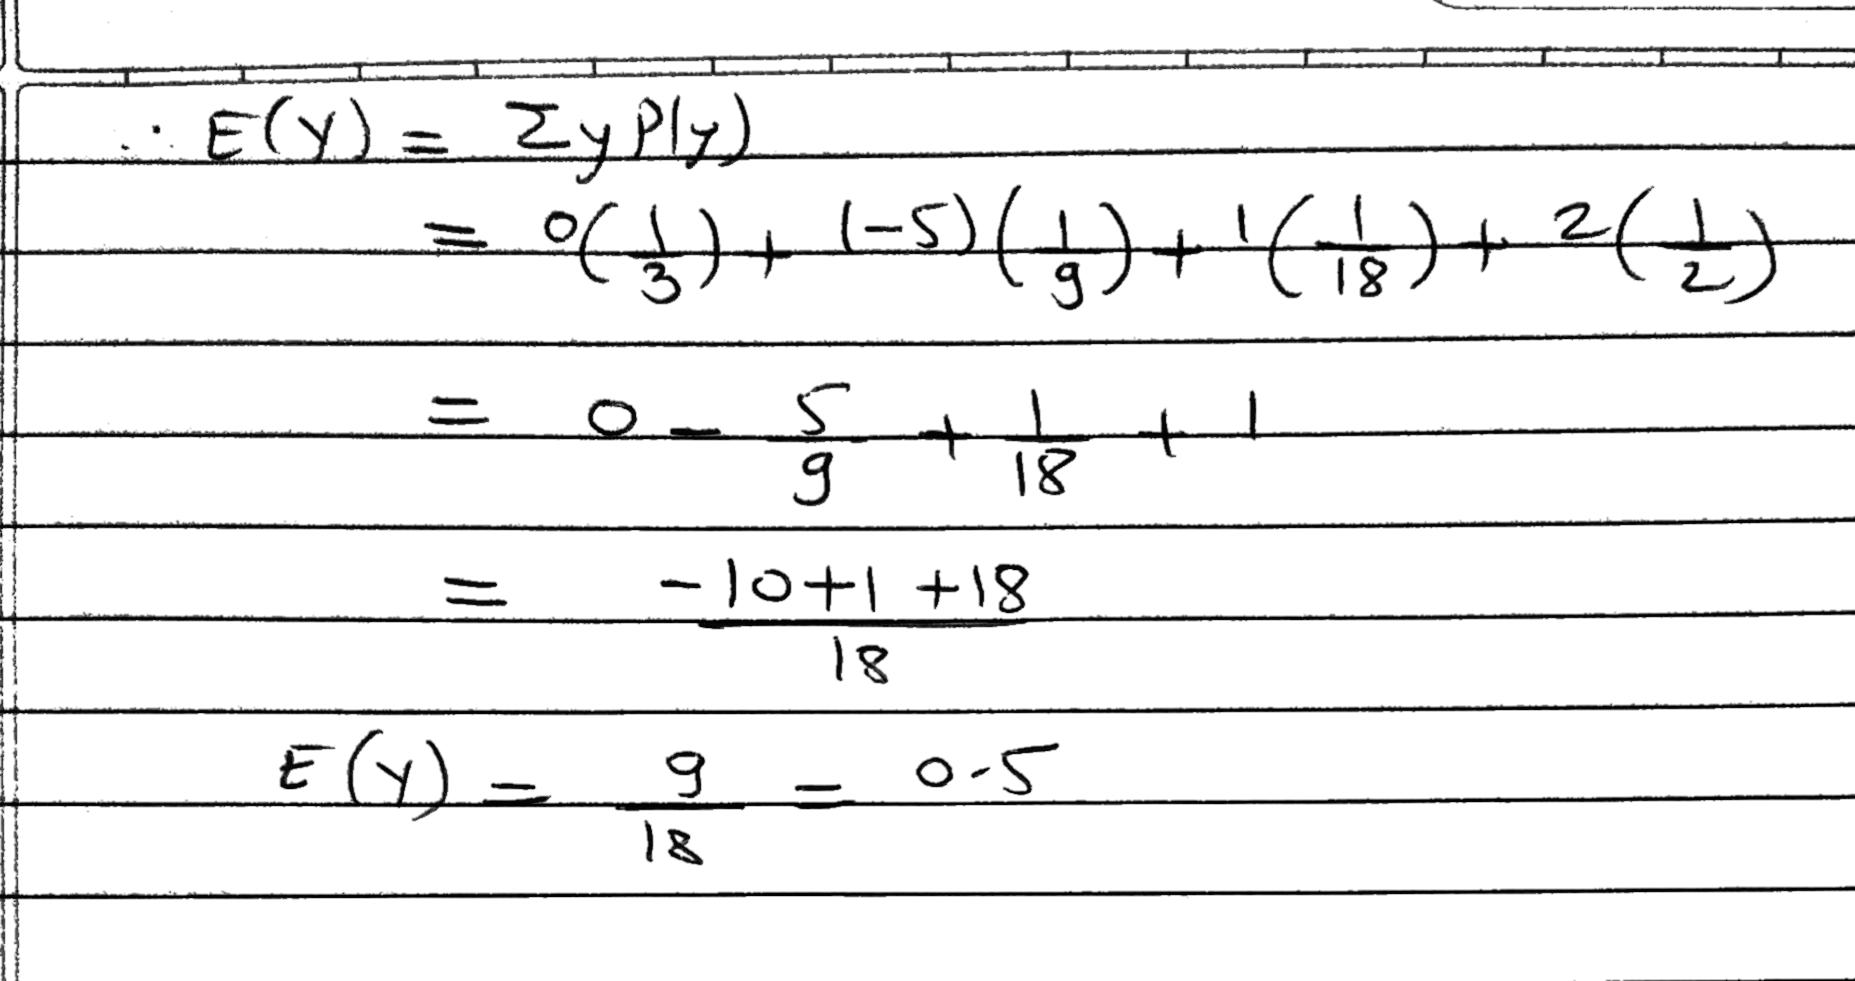 ∴ E(Y) = Σy P(y)
= 0(1/3) + (-5)(1/9) + 1(1/18) + 2(1/2)
= 0 - 5/9 + 1/18 + 1
= (-10+1+18)/18
E(Y) = 9/18 = 0.5